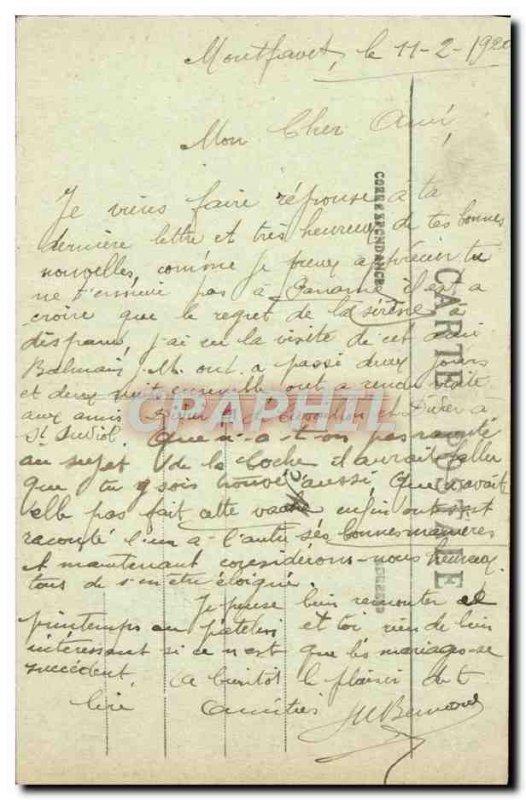 Montfavet, le 11-2-1920
Mon Cher Ami,
Je viens faire réponse à ta
dernière lettre et très heureux de tes bonnes
nouvelles, comme je peux aprécier tu
ne t'ennuie pas à Panam il est a
croire que le regret de la sirène a
disparu, j'ai eu la visite de cet ami
J.M. ont a passé deux jours
et deux nuit ensemble ont a rendu visite
aux amis et Didier à
St
que n'a-t-on pas raconté
au sujet de la Cloche il aurait fallu
que tu y sois trouvé aussi. Que n'avait
elle pas fait cette vache enfin ont s'est
raconté l'un a l'autre ses bonnes manieres
et maintenant considérons-nous heureux
tous de s'en etre éloigné.
Je pense bien remonter ce
printemps au patelin et toi rien de bien
intéressant si ce n'est que les mariages se
succèdent. a bientot le plaisir de te
lire Amitiés
CARTE POSTALE
CORRESPONDANCE
CPAPHIL